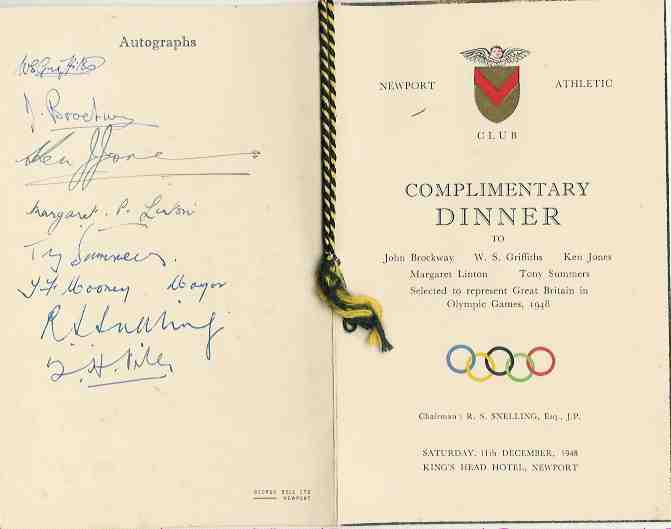 Autographs
W S Griffiths
J. Brockway
Ken J Jones
Margaret. P. Linton
Tony Summers.
Mooney Mayor
R S Snelling
NEWPORT ATHLETIC
CLUB
COMPLIMENTARY
DINNER
TO
John Brockway W. S. Griffiths Ken Jones
Margaret Linton Tony Summers
Selected to represent Great Britain in
Olympic Games, 1948
Chairman: R. S. SNELLING, Esq., J.P.
SATURDAY, 11th DECEMBER, 1948
KING'S HEAD HOTEL, NEWPORT
GEORGE BELL LTD
NEWPORT